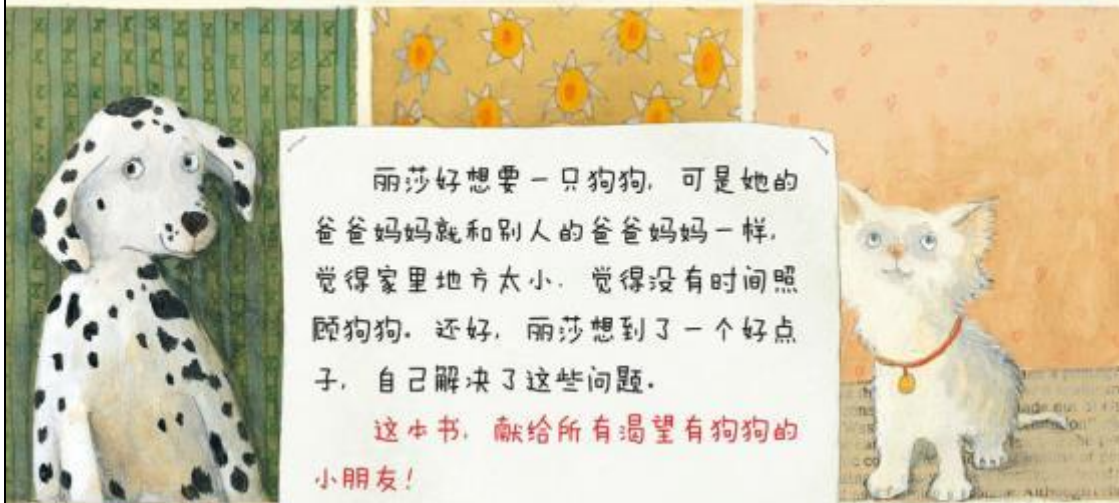 丽莎好想要一只狗狗，可是她的
爸爸妈妈就和别人的爸爸妈妈一样，
觉得家里地方太小，觉得没有时间照
顾狗狗。还好，丽莎想到了一个好点
子，自己解决了这些问题。
这本书，献给所有渴望有狗狗的
小朋友！